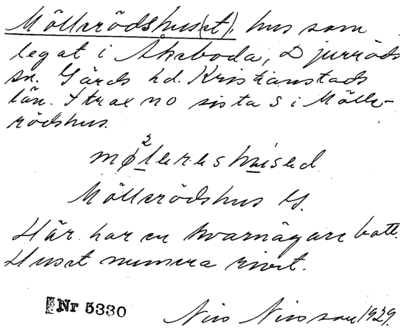 Möllerödshus(et), hus som
legat i Åkeboda, Djurröds
sn. Gärds hd. Kristianstads
län. Strax no sista S i Mölle-
rödshus.
Möllerödshus G.
Här har en kvarnägare bott.
Huset numera rivet.
Nr 5330
Nils Nilsson 1929.